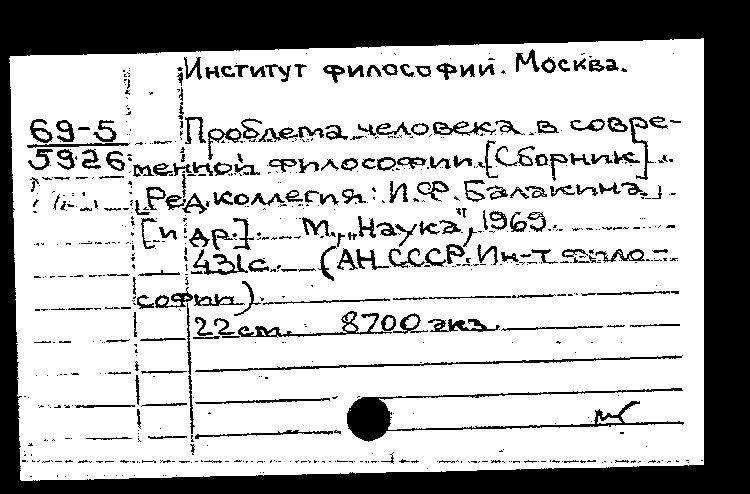 Институт философии. Москва.
69-5
5926
Проблема человека в совре-
менной философии. [Сборник].
[Ред.коллегия: И.Ф.Балакина
[и др.]. М., „Наука", 1969.
431с. (АН СССР. Ин-т фило-
софии).
22см. 8700 экз.